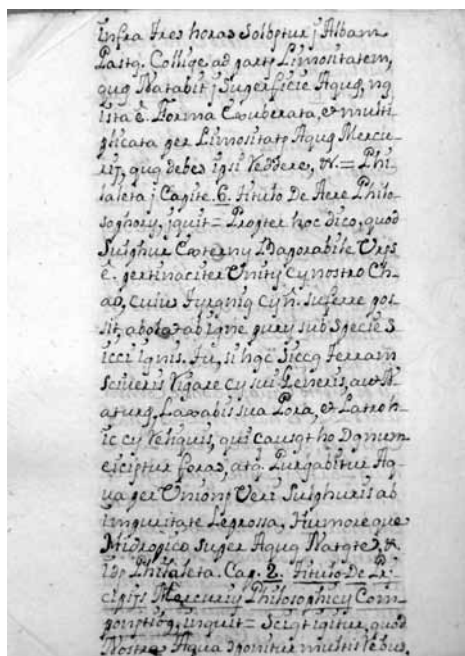 infra tres horas Solvetur j Albam
Pastq. Collige ad parte Limositatem,
quę Natabit j Superficie Aquę, nq
ista ē. Forma Exuberata, et multi
plicata per Limositatē Aquę Mercu-
rij, quę debes ipsi Reddere, &.= Phi-
laleta j Capite. 6. titulo De Aere Philo-
sophorų, jquit= Propter hoc dico, quod
Sulphur Externų Vaporabile Veris
ē. pertinaciter Unitų cų nostro Ch-
ao, cuius tyrąnię
sit, ab igne purų sub specie S
icci ignis. Tu, si hąc Siccą terram
Sciveris Rigare cų sui Generis, aut N-
aturę, Laxabis sua Pora, et Latro h-
ic cų Reliquis, qui
foras, atq. Purgabitur Aq-
ua per Unionē Veri Sulphuris ab
impuritate Leprossa, Humoreque
Hidropico Super Aquą Natątē, &.
Philaleta. Cap. 2. titulo De Pi-
cipijs Mercurių Philosophicų Com-
inquit= Sciąt igitur, quod
Nostra Aqua cponitur multis Rebus,